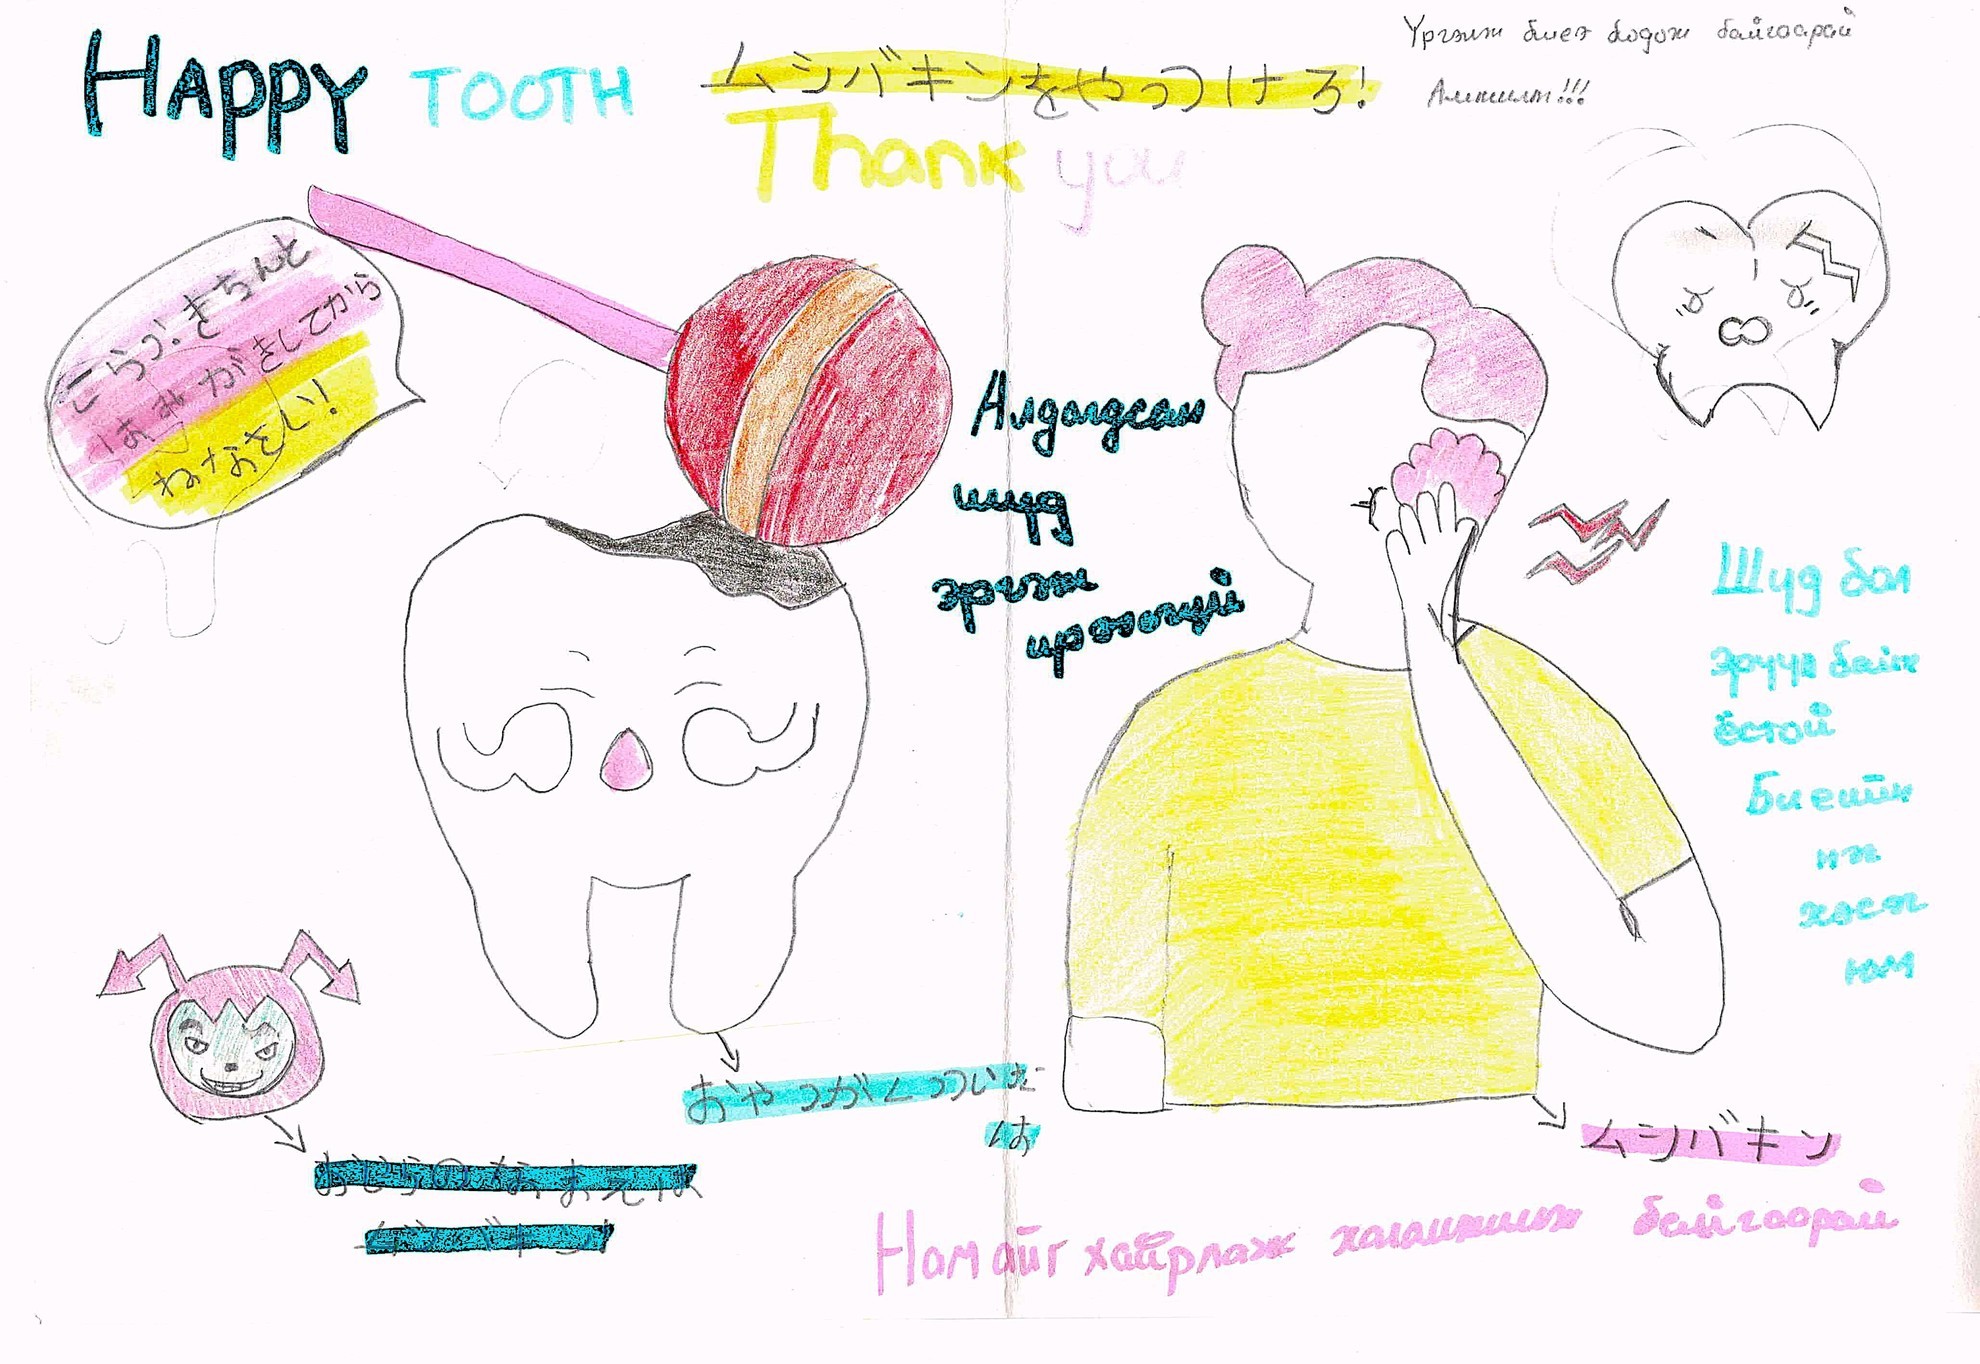 HAPPY TOOTH
ムシバキンをやっつけろ!
Thank you
Үргэлж биеэ бодож байгаарай
Амжилт!!!
こらっ!きちんと
はみがきしてから
ねなさい!
Алдагдсан
шүд
эргэж
ирэхгүй
Шүд бол
эрүүл байх
ёстой
Биеийн
нэг
хэсэг
юм
おやつがくっついた
は
ムシバキン
ムシバキン
Намайг хайрлаж хамгаалж байгаарай